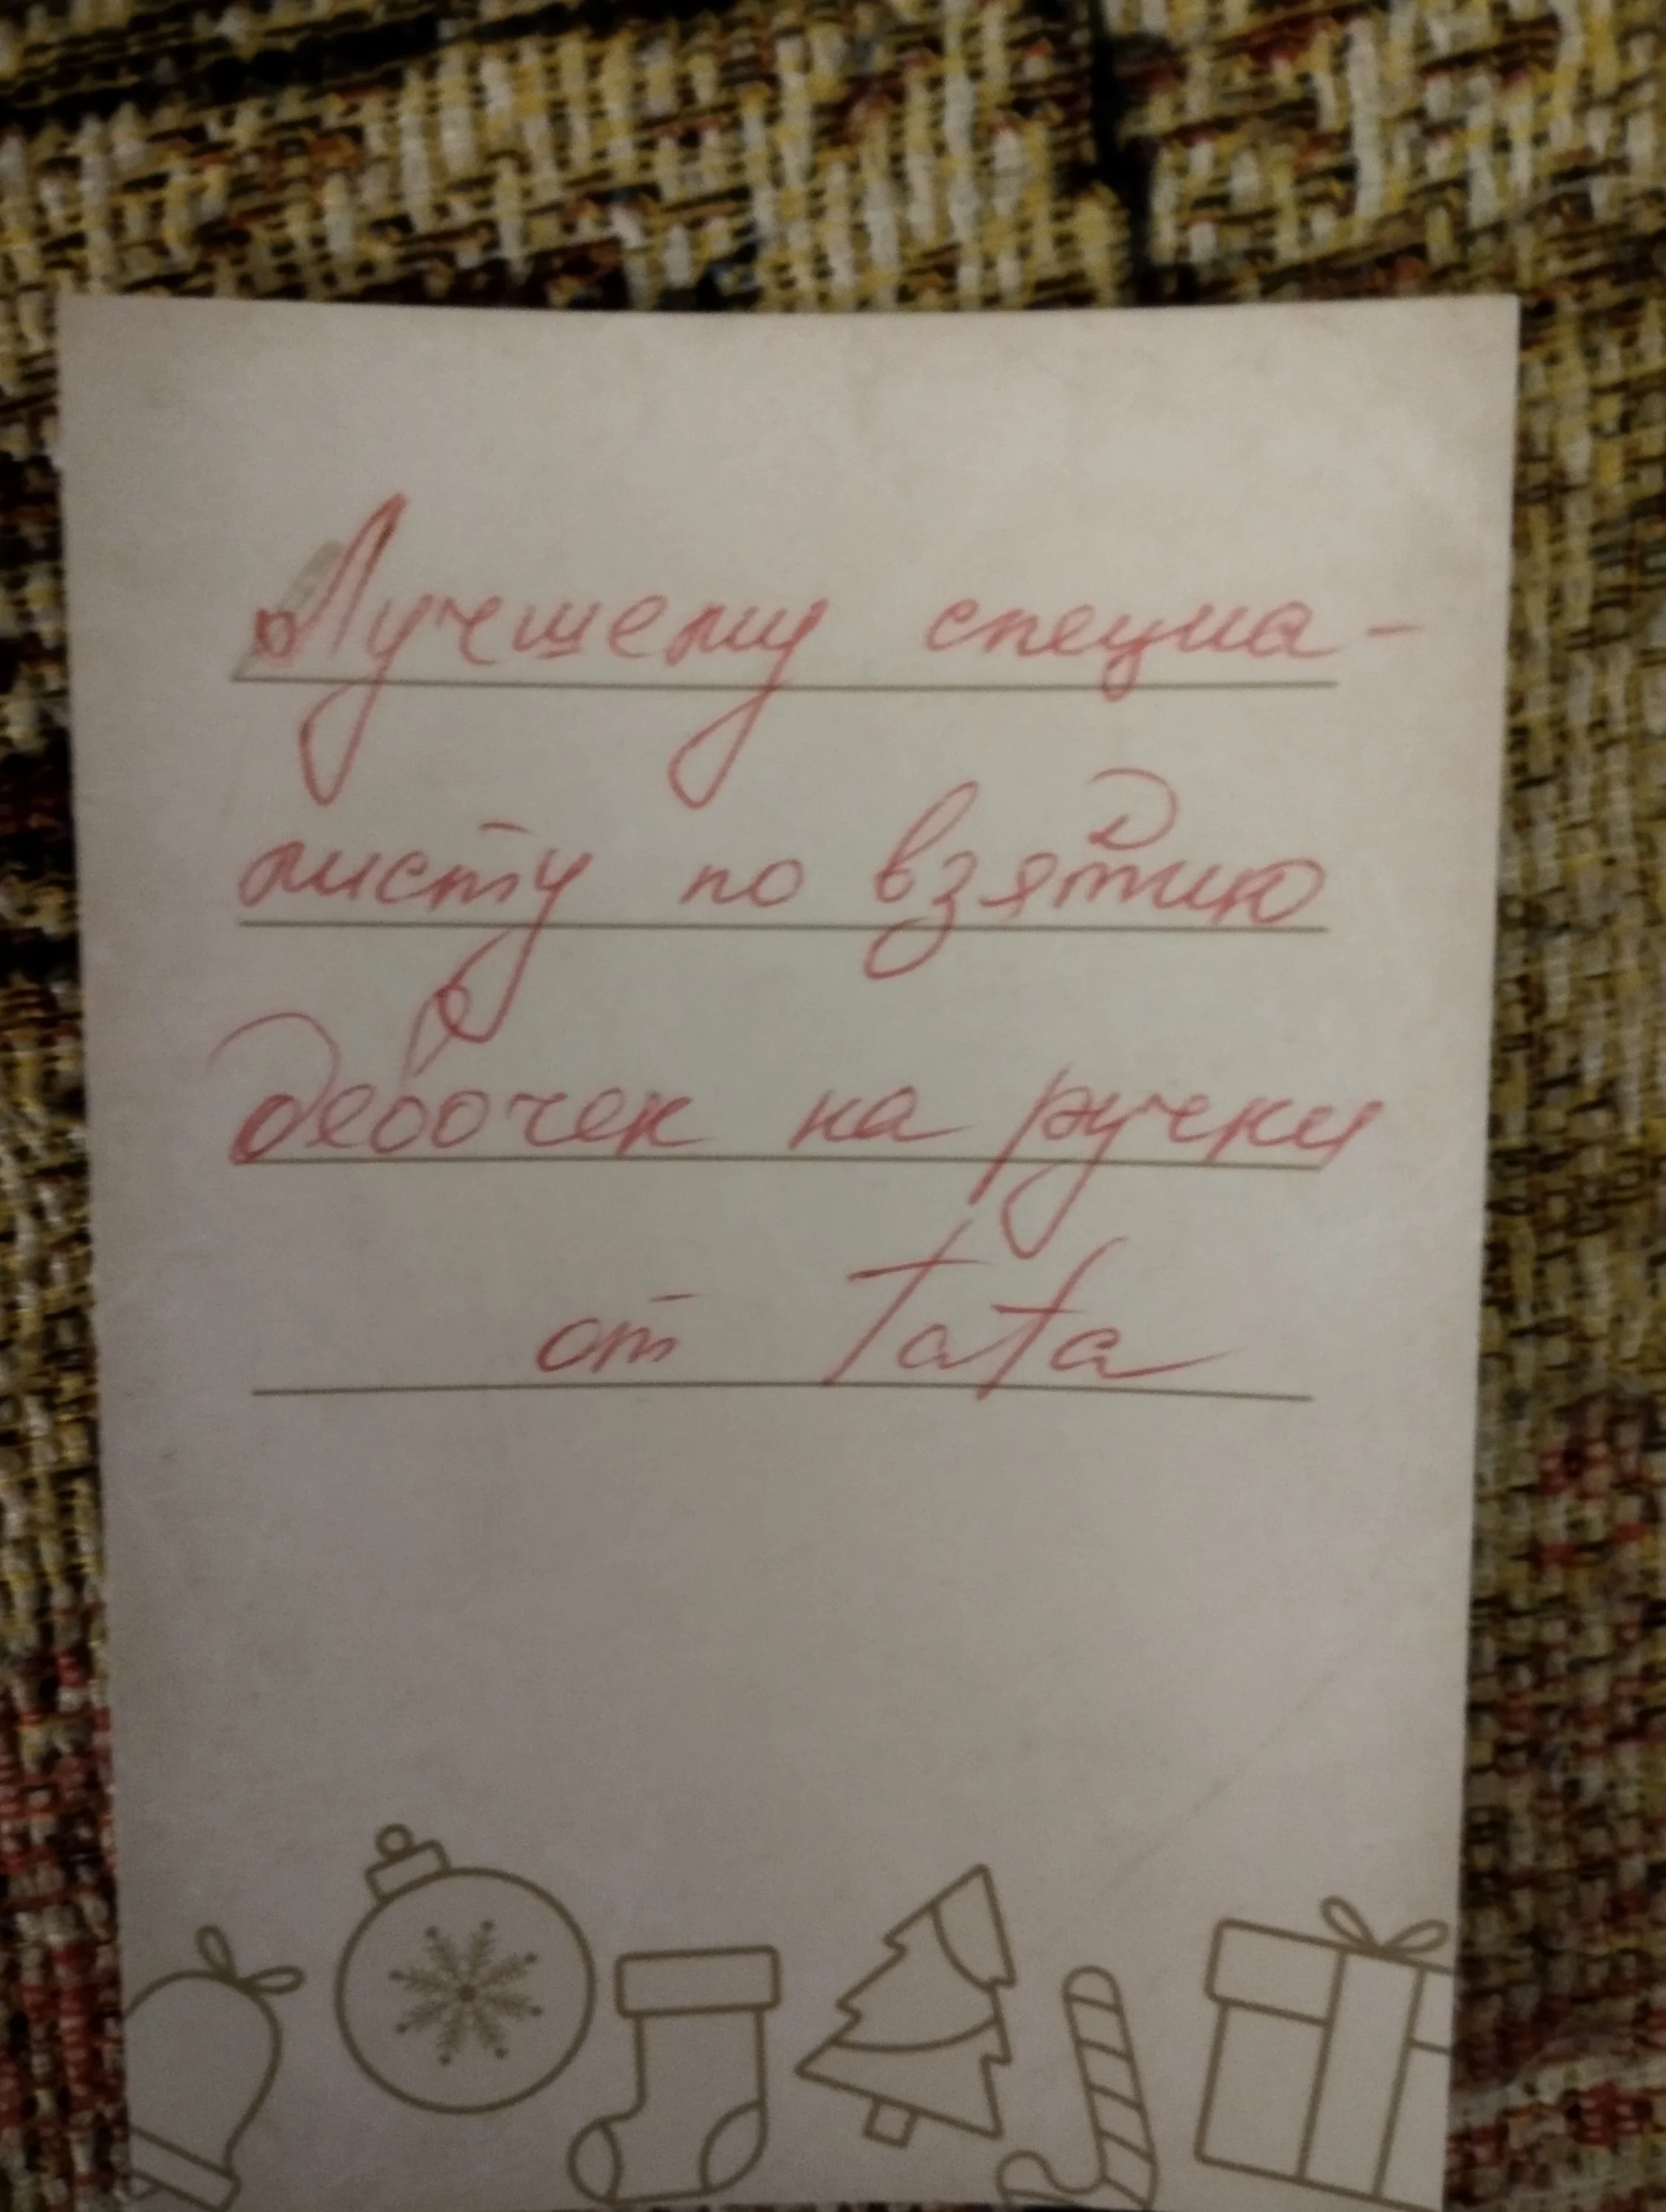 Лучшему специа-
листу по взятию
девочек на ручки
от Тата